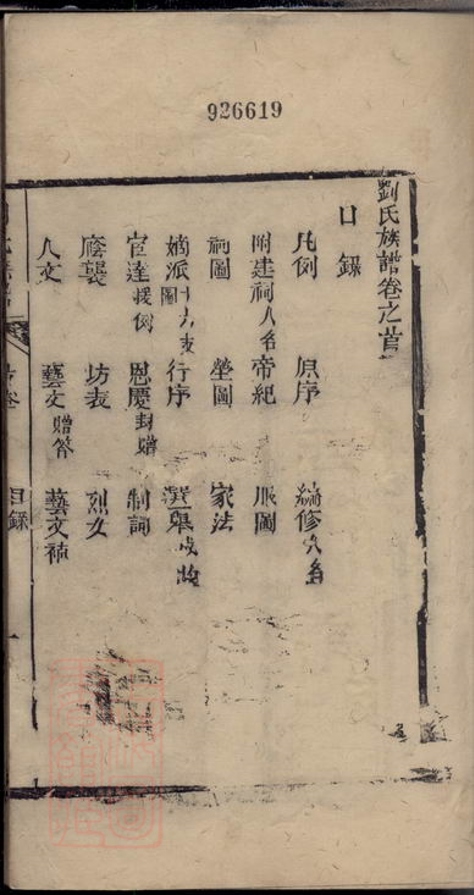 926619
劉氏族譜卷之首
目錄
凡例 原序 編修人名
附建祠人名 帝紀 服圖
祠圖 塋圖 家法
嫡派圖十六支 行序 選舉成均
宦達援例 恩慶封贈 制詞
廕襲 坊表 烈女
人文 藝文贈答 藝文補
首卷 目錄 一